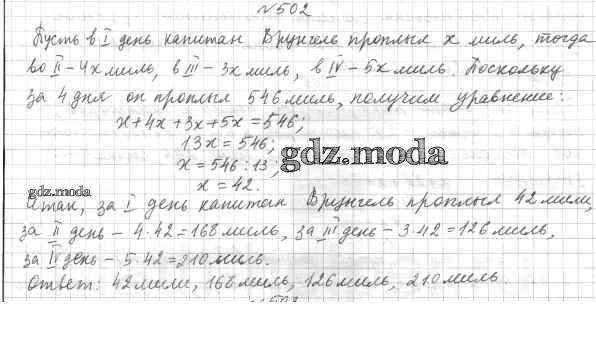 №502
Пусть в I день капитан Врунгель проплыл x миль, тогда
во II – 4x миль, в III – 3x миль, в IV – 5x миль. Поскольку
за 4 дня он проплыл 546 миль, получим уравнение:
x+4x+3x+5x=546;
13x=546;
x=546:13;
gdz.moda
x=42.
gdz.moda
Итак, за I день капитан Врунгель проплыл 42 мили,
за II день – 4·42=168 миль, за III день – 3·42=126 миль,
за IV день – 5·42=210 миль.
Ответ: 42 мили, 168 миль, 126 миль, 210 миль.